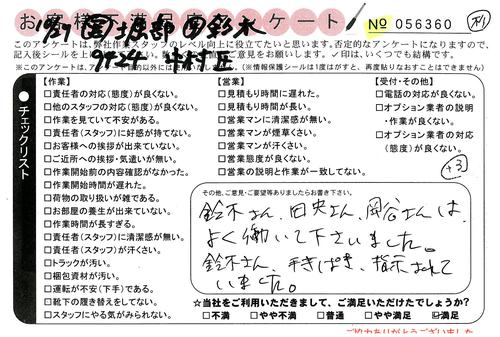 お客様不満足度アンケート！
№ 056360
このアンケートは、弊社作業スタッフのレベル向上に役立てたいと思います。否定的なアンケートになりますので、
記入後シールを上
ご意見をお願いします。✓印は、いくつでも結構です。
※このアンケートは、アンケート
(※情報保護シールは1度はがすと、再度貼りなおすことはできません)
チェックリスト
【作業】
□責任者の対応(態度)が良くない。
□他のスタッフの対応(態度)が良くない。
□作業を見ていて不安がある。
□責任者(スタッフ)に好感が持てない。
□お客様への挨拶が出来ていない。
□ご近所への挨拶・気遣いが無い。
□作業開始前の内容確認がなかった。
□作業開始時間が遅れた。
□荷物の取り扱いが雑である。
□お部屋の養生が出来ていない。
□作業時間が長すぎる。
□責任者(スタッフ)に清潔感が無い。
□責任者(スタッフ)が汗くさい。
□トラックが汚い。
□梱包資材が汚い。
□運転が不安(下手)である。
□靴下の履き替えをしてない。
□スタッフにやる気がみられない。
【営業】
□見積もり時間に遅れた。
□見積もり時間が長い。
□営業マンに清潔感が無い。
□営業マンが煙草くさい。
□営業マンが汗くさい。
□営業態度が良くない。
□営業の説明と作業が一致してない。
【受付・その他】
□電話の対応が良くない。
□オプション業者の説明
・作業が良くない。
□オプション業者の対応
(態度)が良くない。
+3
その他、ご意見・ご要望等ありましたらお書き下さい。
鈴木さん、田央さん、岡谷さんは、
よく働いて下さいました。
鈴木さん、手きぱき、指示されて
いました。
☆当社をご利用いただきまして、ご満足いただけたでしょうか?
□不満 □やや不満 □普通 □やや満足 ☑満足
ご協力ありがとうございました